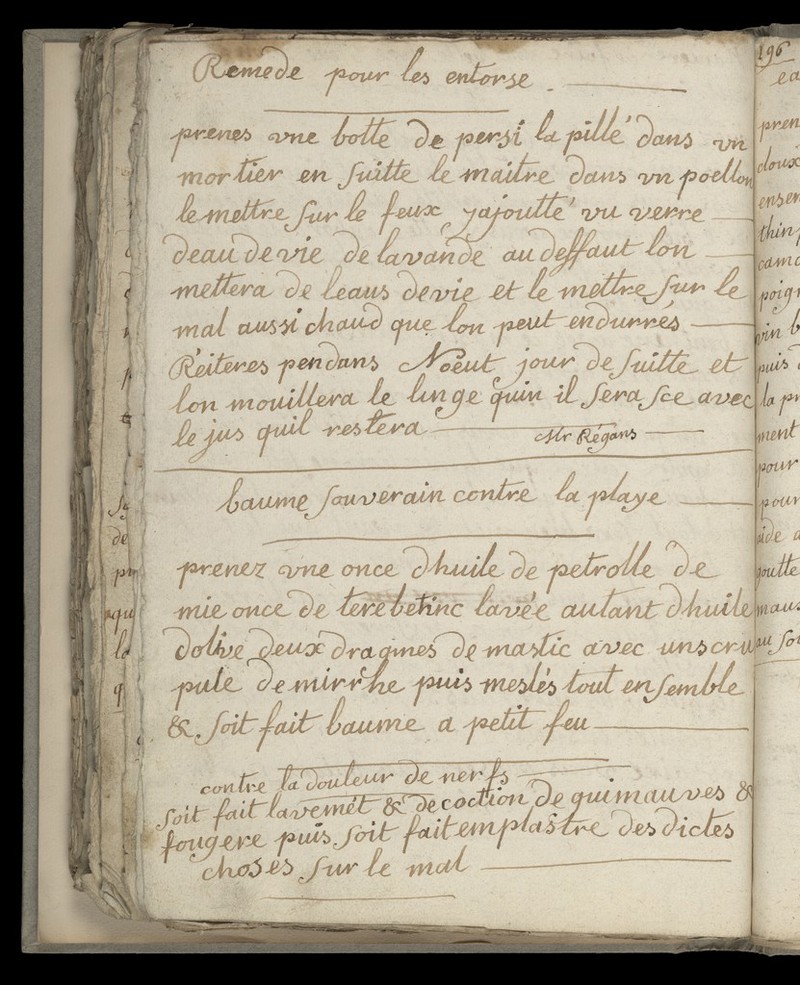 Remede pour les entorse
prenes vne botte de persi la pillé dans vn
mortier en suitte le maitre dans vn poellon
le mettre sur le feux yajoutté vn verre
deau de vie de lavande au deffaut lon
mettera de leaus devie et le mettre sur le
mal aussi chaud que lon peut endurrés
Réiteres pendans Noeut jour de suitte et
lon mouillera le linge quin il sera sce avec
le jus quil restera
Mr Régans
baume souverain contre la playe
prenez vne once dhuile de petrolle de
mie once de terebetinc lavée autant dhuile
dolive deux dragmes de mastic avec un scru
pule de mirrhe puis meslés tout ensemble
&. soit fait baume a petit feu
contre la douleur de nerfs
soit fait lavemét & decoction de guimauves &
fougere puis soit fait emplastre des dictes
choses sur le mal
196
pren
doux
ensen
poign
vin b
puis
la pr
ment
pour
pour
aide a
goutte
maux
au soi